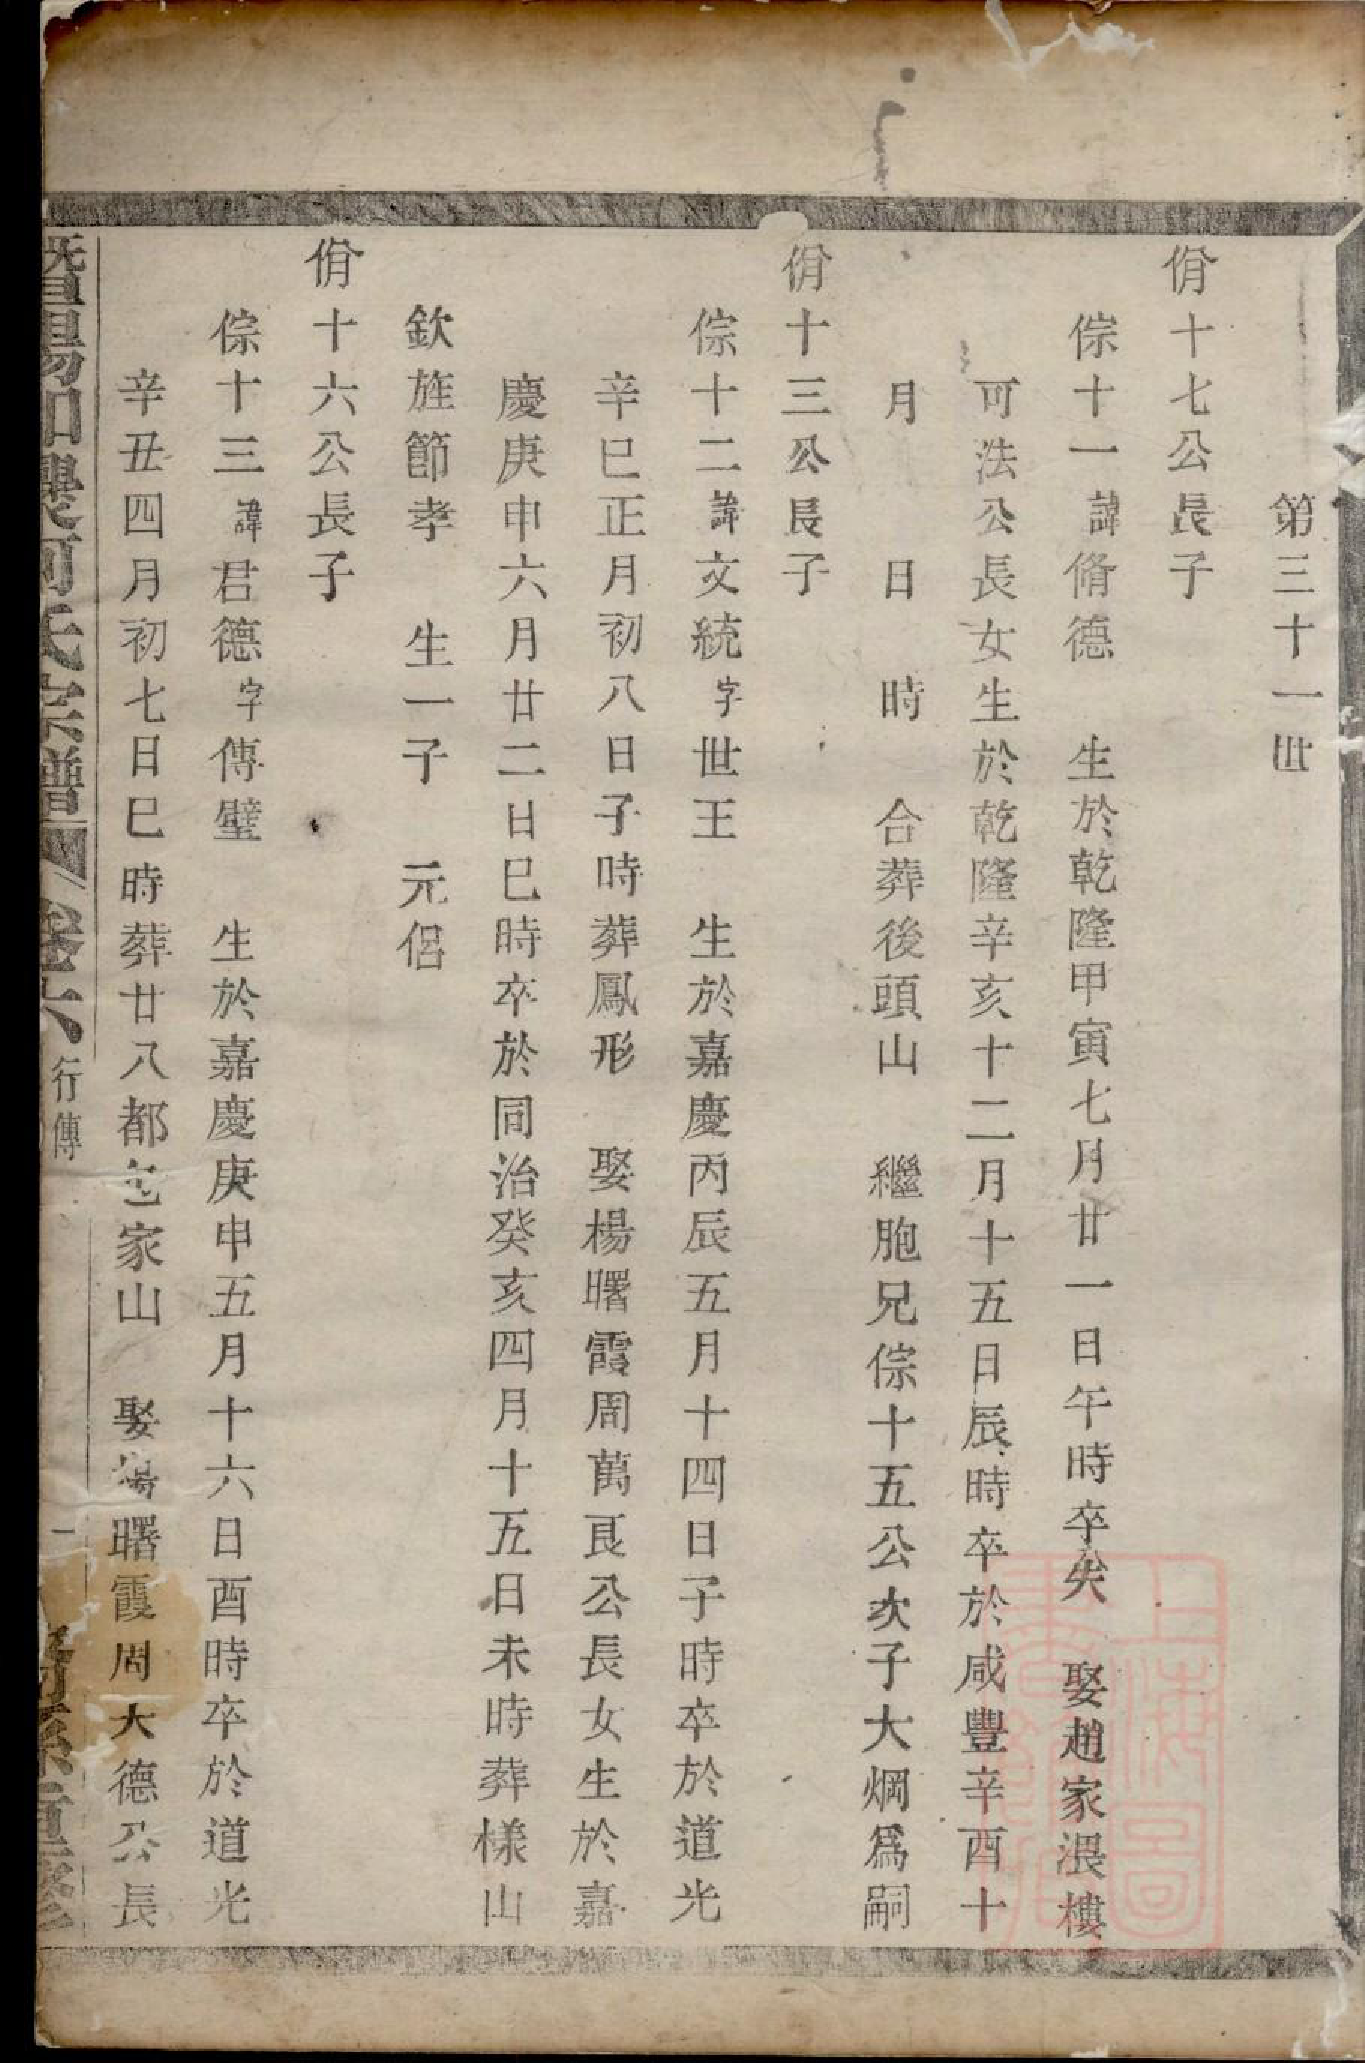 第三十一世
佾十七公長子
倧十一諱脩德　生於乾隆甲寅七月廿一日午時卒失　娶趙家湲樓
可法公長女生於乾隆辛亥十二月十五日辰時卒於咸豐辛酉十
月　日　時　合葬後頭山　繼胞兄倧十五公次子大焵爲嗣
佾十三公長子
倧十二諱文統字世王　生於嘉慶丙辰五月十四日子時卒於道光
辛巳正月初八日子時葬鳳形　娶楊曙霞周萬良公長女生於嘉
慶庚申六月廿二日巳時卒於同治癸亥四月十五日未時葬樣山
欽旌節孝　生一子　元侶
佾十六公長子
倧十三諱君德字傳璧　生於嘉慶庚申五月十六日酉時卒於道光
辛丑四月初七日巳時葬廿八都包家山　娶楊曙霞周大德公長
暨陽何氏宗譜　卷六　行傳　一
上海圖書館藏